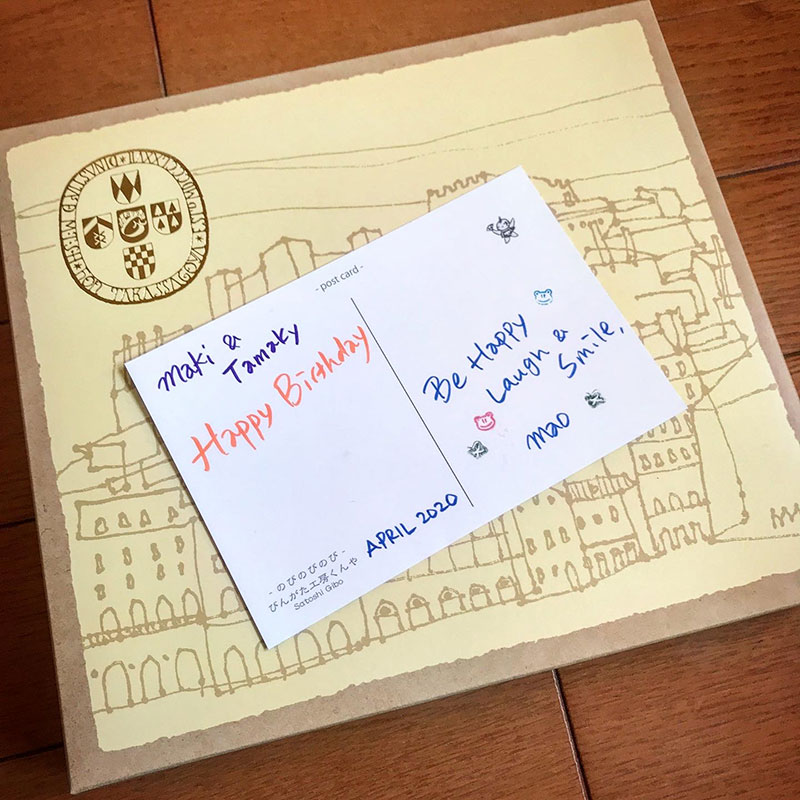 - post card -
Maki &
Tamaky
Happy Birthday
Be Happy
Laugh &
Smile,
mao
APRIL 2020
- のびのびのび -
びんがた工房くんや
Satoshi Gibo